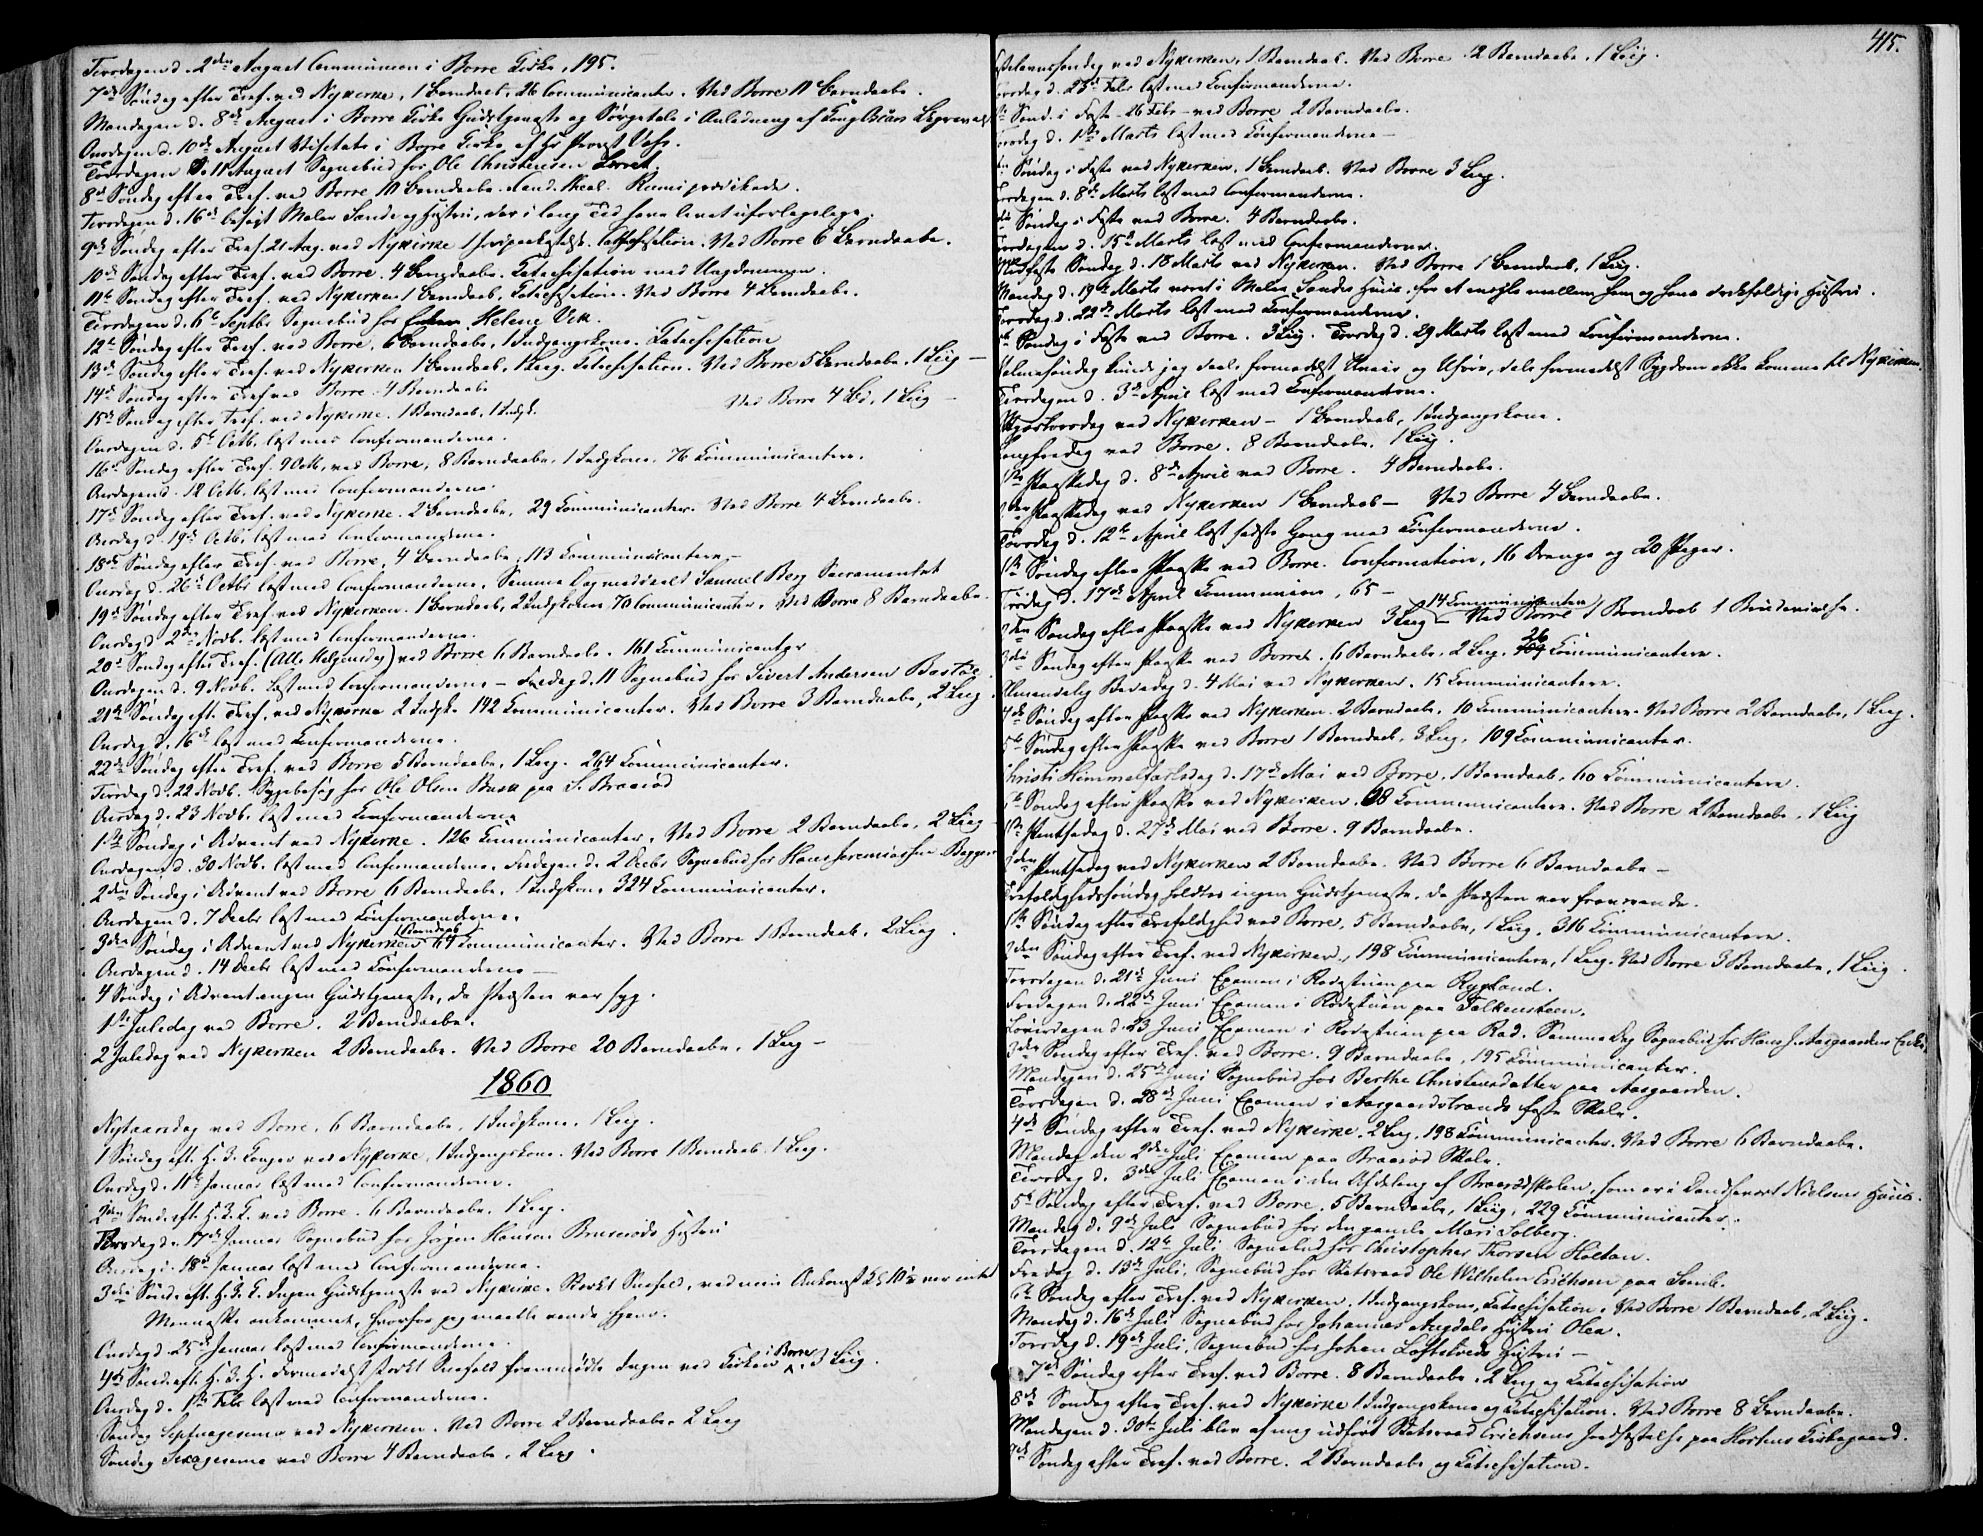 Tirsdagen d. 2den August Communion i Borre Kirke, 195.
7de Søndag efter Tref. ved Nykerke, 1 Barndaab, 26 Communicanter. Ved Borre 11 Barndaabe.
Mandagen d. 8de August i Borre Kirke Gudstjeneste og Sørgetale i Anledning af Kong Oscars Begravelse
Onsdagen d. 10de August Visitats i Borre Kirke af Hr Provst
Torsdagen d. 11 August Sognebud hos Ole Christensen
8de Søndag efter Tref. ved Borre 10 Barndaabe. Cand. theol. prædikede.
Tirsdagen d. 16de besøgt Maler Sande og Hustru, der i lang Tid have levet uforligelige.
9de Søndag efter Tref. 21 Aug. ved Nykirke Cathechisation. Ved Borre 6 Barndaabe.
10de Søndag efter Tref. ved Borre. 4 Barndaabe. Catechisation med Ungdommen.
11te Søndag efter Tref. ved Nykerken 1 Barndaab, Catechisation. Ved Borre 4 Barndaabe.
Tirsdagen d. 6te Septbr Sognebud hos Helene Vek.
12te Søndag efter Tref. ved Borre, 6 Barndaabe, 1 Indgangskone. Catechisation
13de Søndag efter Tref. ved Nykerken 1 Barndaab, 1 Liig. Catechisation. Ved Borre 5 Barndaabe, 1 Liig –
14de Søndag efter Tref. ved Borre. 4 Barndaabe
15de Søndag efter Tref. ved Nykerke. 1 Barndaab, 1 Indgk. Ved Borre 4 Bd, 1 Liig –
Onsdagen d. 5te Octb. læst med Confirmanderne.
16de Søndag efter Tref. 9 Octb. ved Borre, 8 Barndaabe, 1 Indgkone, 76 Communicantere.
Onsdagen d. 12 Octb. læst med Confirmanderne.
17de Søndag efter Tref. ved Nykerke. 2 Barndaabe, 29 Communicanter. Ved Borre 4 Barndaabe.
Onsdag d. 19de Octb. læst med Confirmanderne.
18de Søndag efter Tref. ved Borre, 4 Barndaabe, 113 Communicantere –
Onsdag d. 26de Octbr læst med Confirmanderne. Samme Dag meddeelt Samuel Berg Sacramentet
19de Søndag efter Tref. ved Nykerken. 1 Barndaab, 2 Indgkoner, 70 Communicanter. Ved Borre 8 Barndaabe.
Onsdag d. 2den Novb. læst med Confirmanderne.
20de Søndag efter Tref. (Alle Helgensdag) ved Borre 6 Barndaabe. 161 Communicanter
Onsdagen d. 9 Novb. læst med Confirmanderne – Fredag d. 11 Sognebud hos Sivert Andersen Bastøe
21de Søndag eft. Tref. ved Nykerke 2 Indgk. 142 Communicanter. Ved Borre 3 Barndaabe, 2 Liig
Onsdag d. 16de læst med Confirmanderne.
22de Søndag efter Tref. ved Borre 5 Barndaabe, 1 Liig. 264 Communicanter.
Tirsdag d. 22 Novb. Sygebesøg hos Ole Olsen Busk paa S. Braarød
Onsdag d. 23 Novb. læst med Confirmanderne
1ste Søndag i Advent ved Nykerke. 126 Communicanter. Ved Borre 2 Barndaabe, 2 Liig
Onsdagen d. 30 Novb. læst med Confirmanderne. Fredagen d. 2 Decbr Sognebud hos Hans Jeremiassen
2den Søndag i Advent ved Borre 6 Barndaabe, 1 Indgkone, 324 Communicanter.
Onsdagen d. 7 Decbr læst med Confirmanderne.
1 Barndaab
3die Søndag i Advent ved Nykerken 64 Communicanter. Ved Borre 1 Barndaab. 2 Liig.
Onsdagen d. 14 Decbr læst med Confirmanderne –
4 Søndag i Advent ingen Gudstjeneste, da Præsten var syg.
1ste Juledag ved Borre. 2 Barndaabe.
2 Juledag ved Nykerken 2 Barndaabe. Ved Borre 20 Barndaabe, 1 Liig –
1860
Nytaarsdag ved Borre, 6 Barndaabe, 1 Indgkone, 1 Liig.
1 Søndag eft. H. 3. Konger ved Nykerke, 1 Indgangskone. Ved Borre 1 Barndaab, 1 Liig.
Onsdag d. 11te Januar læst med Confirmanderne.
2den Sønd. eft. H. 3. K. ved Borre. 6 Barndaabe, 1 Liig.
Tirsdag d. 17de Januar Sognebud hos Jørgen Hansen Bruserøds Hustru
Onsdag d. 18de Januar læst med Confirmanderne.
3die Sønd. eft. H. 3. K. Ingen Gudstjeneste ved Nykirke. Stærkt Snefald, ved min Ankomst Kl 10½ var intet
Menneske ankommet, hvorfor jeg maatte vende hjem.
Onsdag d. 25de Januar læst med Confirmanderne.
4de Sønd. eft. H. 3. K. Formedelst stærkt Snefald fremmødte Ingen ved Kirken i Borre, 3 Liig.
Onsdag d. 1ste Febr læst med Confirmanderne.
Søndag Septuagesima ved Nykerken. Ved Borre 2 Barndaabe. 2 Liig
Søndag Sexagesima ved Borre 4 Barndaabe, 2 Liig.
415.
Fastelavnssøndag ved Nykerken, 1 Barndaab. Ved Borre 2 Barndaabe, 1 Liig.
d. 23de Febr læst med Confirmanderne.
Sønd. i Faste 26 Febr ved Borre 2 Barndaabe.
Torsdag d. 1ste Marts læst med Confirmanderne –
Søndag i Faste ved Nykerken, 1 Barndaab. Ved Borre 3 Liig.
Torsdagen d. 8de Marts læst med Confirmanderne.
Søndag i Faste ved Borre. 4 Barndaabe.
Torsdagen d. 15de Marts læst med Confirmanderne.
Midfaste Søndag d. 18 Marts ved Nykerken. Ved Borre 1 Barndaab, 1 Liig.
Mandag d. 19de Marts været i Maler Sandes Huus for at mægle mellem ham og hans Hustru.
Torsdag d. 22de Marts læst med Confirmanderne.
Søndag i Faste ved Borre. 3 Liig. Torsdag d. 29 Marts læst med Confirmanderne.
Palmesøndag kunde jeg deels formedelst Uveir og Uføre, dels formedelst Sygdom ikke komme til Nykirken.
Tirsdagen d. 3die April læst med Confirmanderne.
Skjærtorsdag ved Nykerken – 1 Barndaab, 1 Indgangskone.
Langfredag ved Borre. 8 Barndaabe. 1 Liig.
1ste Paaskedag d. 8de April ved Borre. 4 Barndaabe.
2den Paaskedag ved Nykerken 1 Barndaab – Ved Borre 4 Barndaabe.
Torsdag d. 12te April læst sidste Gang med Confirmanderne.
1ste Søndag efter Paaske ved Borre. Confirmation, 16 Drenge og 20 Piger.
Tirsdag d. 17de April Communion, 65 –
14 Communicantere
2den Søndag efter Paaske ved Nykerken 3 Liig – Ved Borre 1 Barndaab 1 Brudevielse.
3die Søndag efter Paaske ved Borre. 6 Barndaabe, 2 Liig, 26 Communicantere.
Almindelig Bededag d. 4 Mai ved Nykerken. 15 Communicantere.
4de Søndag efter Paaske ved Nykerken. 2 Barndaabe. 10 Communicantere. Ved Borre 2 Barndaabe, 1 Liig.
5te Søndag efter Paaske ved Borre 1 Barndaab, 3 Liig, 109 Communicanter.
Christi Himmelfartsdag d. 17de Mai ved Borre, 1 Barndaab, 60 Communicantere.
6te Søndag efter Paaske ved Nykerken. 68 Communicantere. Ved Borre 2 Barndaabe, 1 Liig
1ste Pintsedag d. 27de Mai ved Borre. 9 Barndaabe.
2den Pintsedag ved Nykerken 2 Barndaabe. Ved Borre 6 Barndaabe –
Trefoldighedssøndag holdtes ingen Gudstjeneste, da Præsten var fraværende.
1ste Søndag efter Trefoldighed ved Borre, 5 Barndaabe, 1 Liig, 316 Communicantere.
2den Søndag efter Tref. ved Nykirken, 198 Communicantere, 1 Liig. Ved Borre 3 Barndaabe, 1 Liig.
Torsdagen d. 21de Juni Examen i Rodestuen paa Rygland.
Fredagen d. 22de Juni Examen i Rodestuen paa Falkensteen.
Løverdagen d. 23 Juni Examen i Rodestuen paa Rød. Samme Dag Sognebud hos Hans J. Aasgaardens Enke
3die Søndag efter Tref. ved Borre. 9 Barndaabe, 195 Communicanter.
Mandagen d. 25de Juni Sognebud hos Berthe Christensdatter paa Aasgaarden.
Torsdagen d. 28de Juni Examen i Aasgaardstrands faste Skole.
4de Søndag efter Tref. ved Nykirke. 2 Liig, 198 Communicanter. Ved Borre 6 Barndaabe.
Mandag den 2den Juli Examen paa Braarød Skole.
Tirsdag d. 3die Juli Examen i den Afdeling af Braarødskolen, som er i Nielsens Huus.
5te Søndag efter Tref. ved Borre. 5 Barndaabe, 1 Liig, 229 Communicanter.
Mandag d. 9de Juli Sognebud hos den gamle Mari Solberg.
Torsdagen d. 12te Juli Sognebud hos Christopher Thorsen Holtan.
Fredag d. 13de Juli, Sognebud hos Statsraad Ole Wilhelm Erichsen paa Semb.
6te Søndag efter Tref. ved Nykerken. 1 Indgangskone, Catechisation. Ved Borre 1 Barndaab, 2 Liig.
Mandag d. 16de Juli Sognebud hos Johannes Augdals Hustru Olea.
Torsdag d. 19de Juli, Sognebud hos Johan Løftsrøds Hustru –
7de Søndag efter Tref. ved Borre. 8 Barndaabe, 2 Liig og Catechisation
8de Søndag efter Tref. ved Nykirke 1 Indgangskone og Catechisation. Ved Borre 8 Barndaabe.
Mandagen d. 30te Juli blev af mig udført Statsraad Erichsens Jordfæstelse paa Hortens Kirkegaard.
9de Søndag efter Tref. ved Borre. 2 Barndaabe og Catechisation.